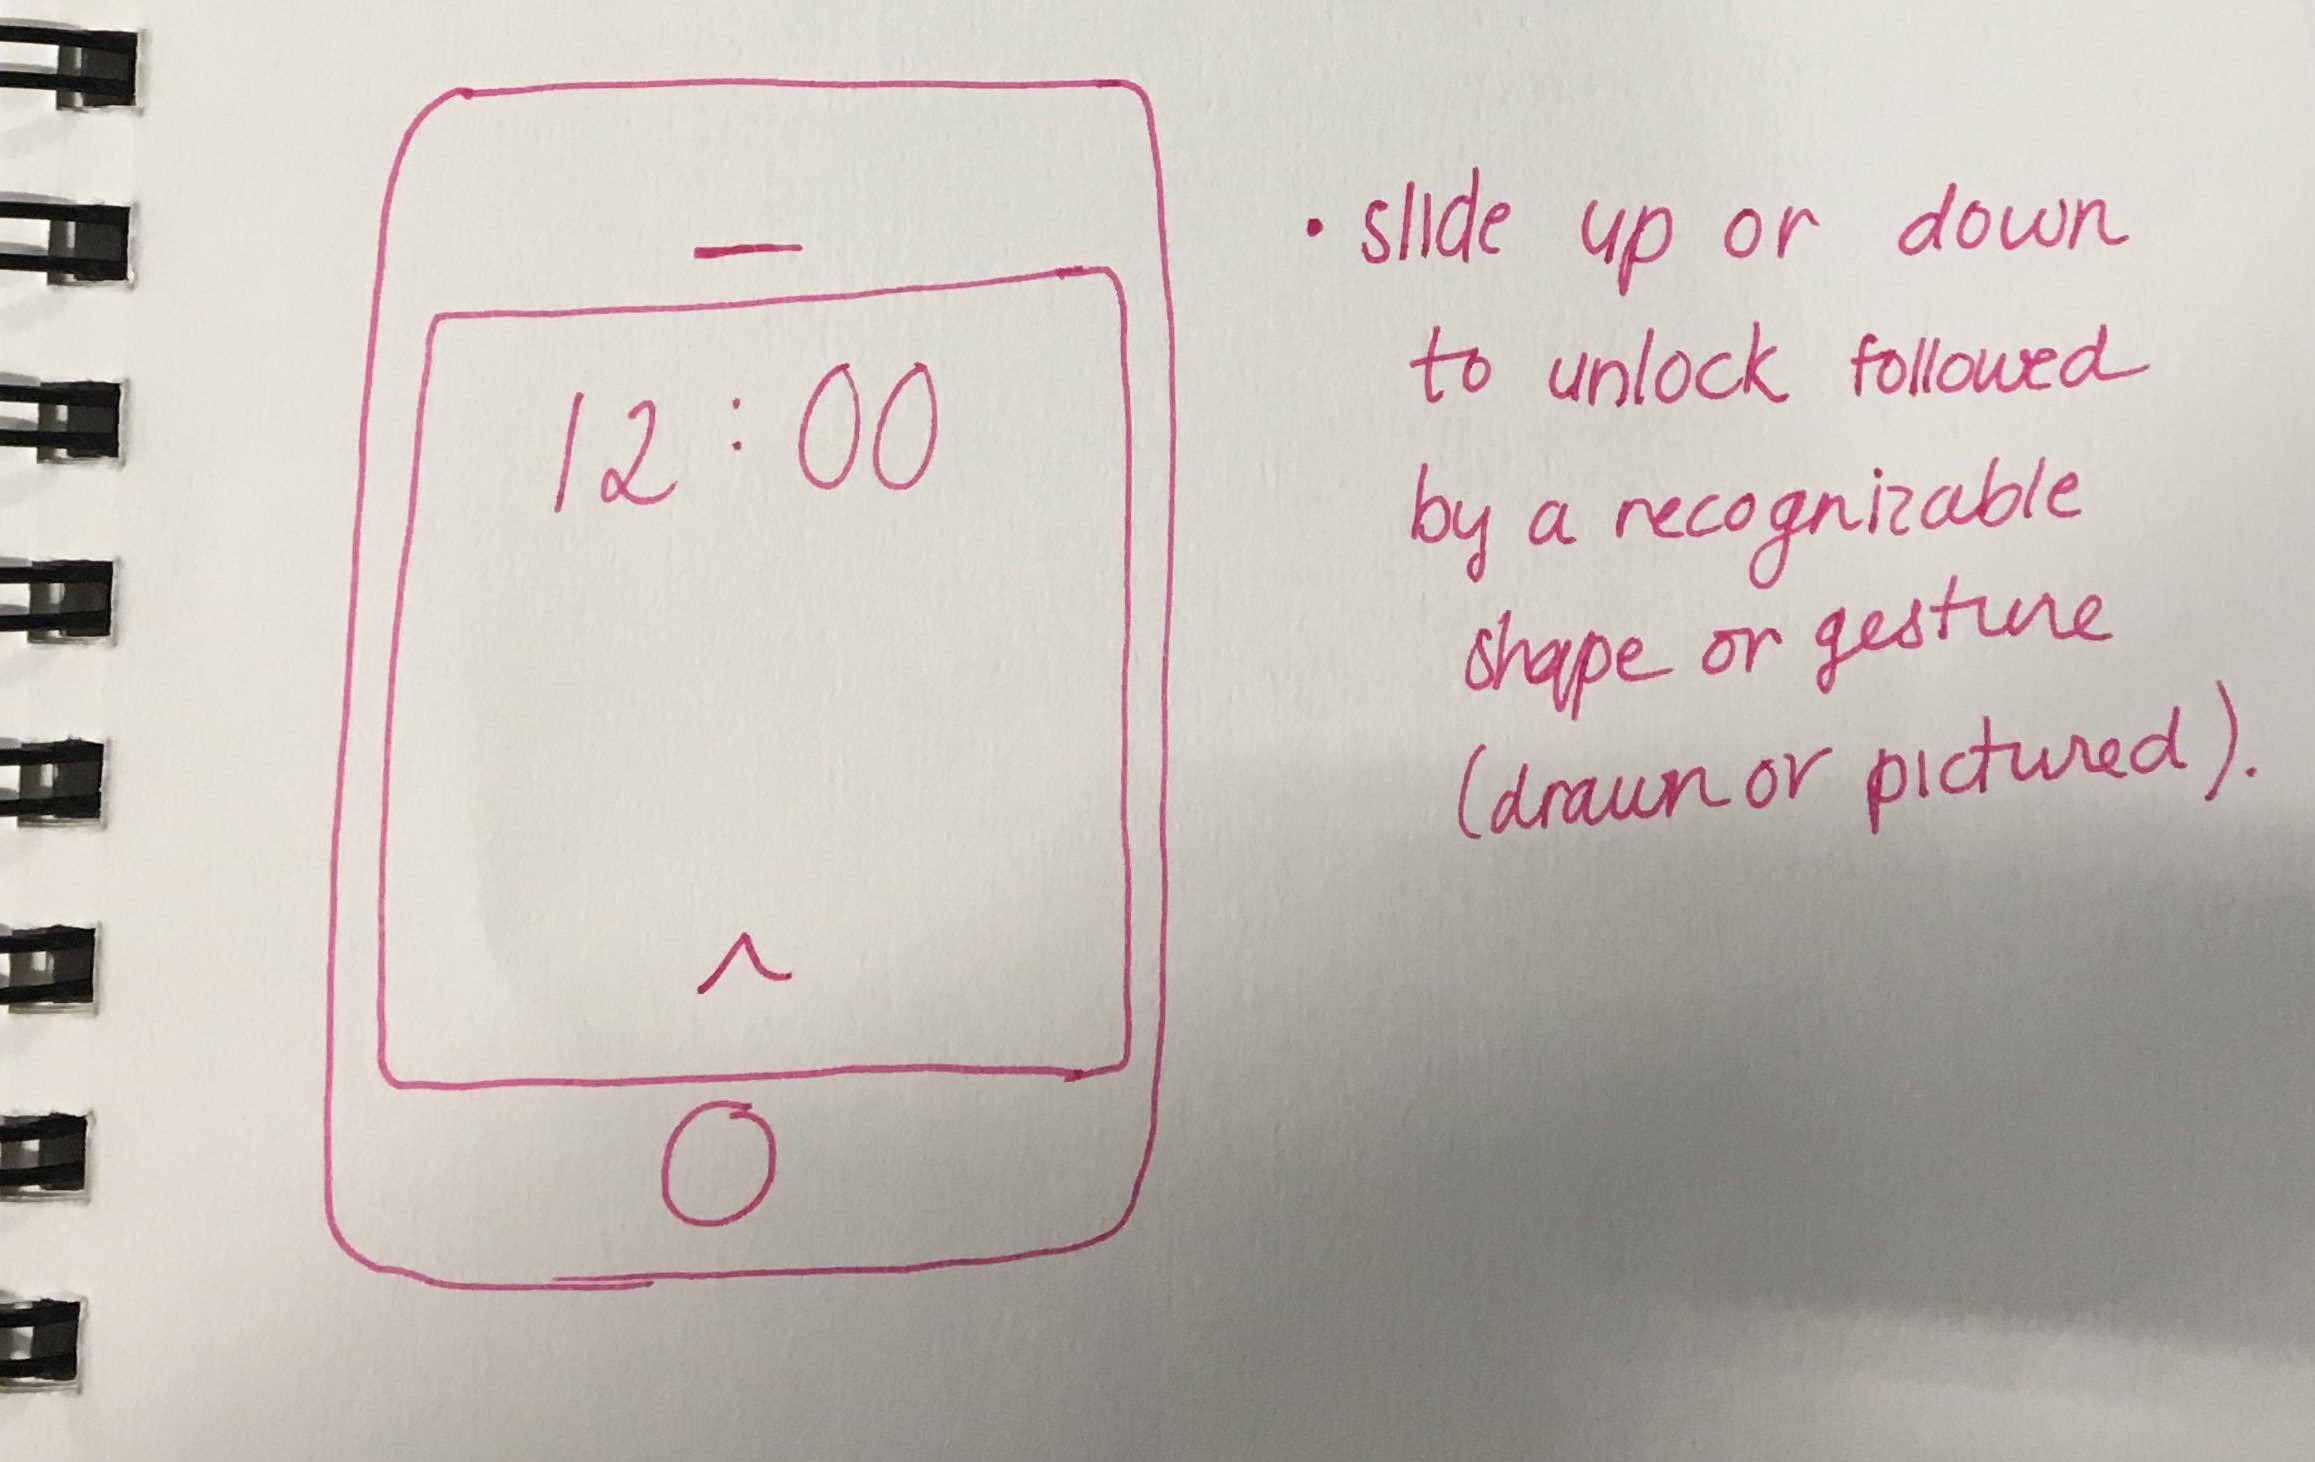 12:00
• slide up or down
to unlock followed
by a recognizable
shape or gesture
(drawn or pictured).